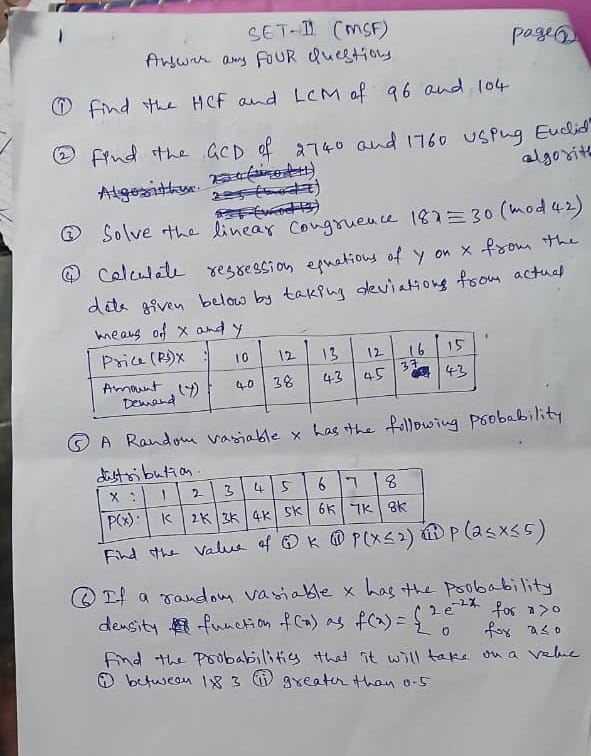 SET-II (MSF)
page ②
Answer any FOUR Questions
① find the HCF and LCM of 96 and 104
② find the GCD of 2740 and 1760 using Euclid
algorith
Algorithm
③ Solve the linear Congruence 18x ≡ 30 (mod 42)
④ Calculate regression equations of y on x from the
data given below by taking deviations from actual
means of x and y
Price (Rs) X : 10 12 13 12 16 15
Amount Demand (Y) 40 38 43 45 37 43
⑤ A Random variable x has the following probability
distribution.
X : 1 2 3 4 5 6 7 8
P(x): K 2K 3K 4K 5K 6K 7K 8K
Find the value of ⓘ K ⓘⓘ P(X≤2) ⓘⓘⓘ P(2≤X≤5)
⑥ If a random variable x has the probability
density function f(x) as f(x) = { 2e^-2x for x>0
0 for x≤0
find the probabilities that it will take on a value
ⓘ between 1 & 3 ⓘⓘ greater than 0.5